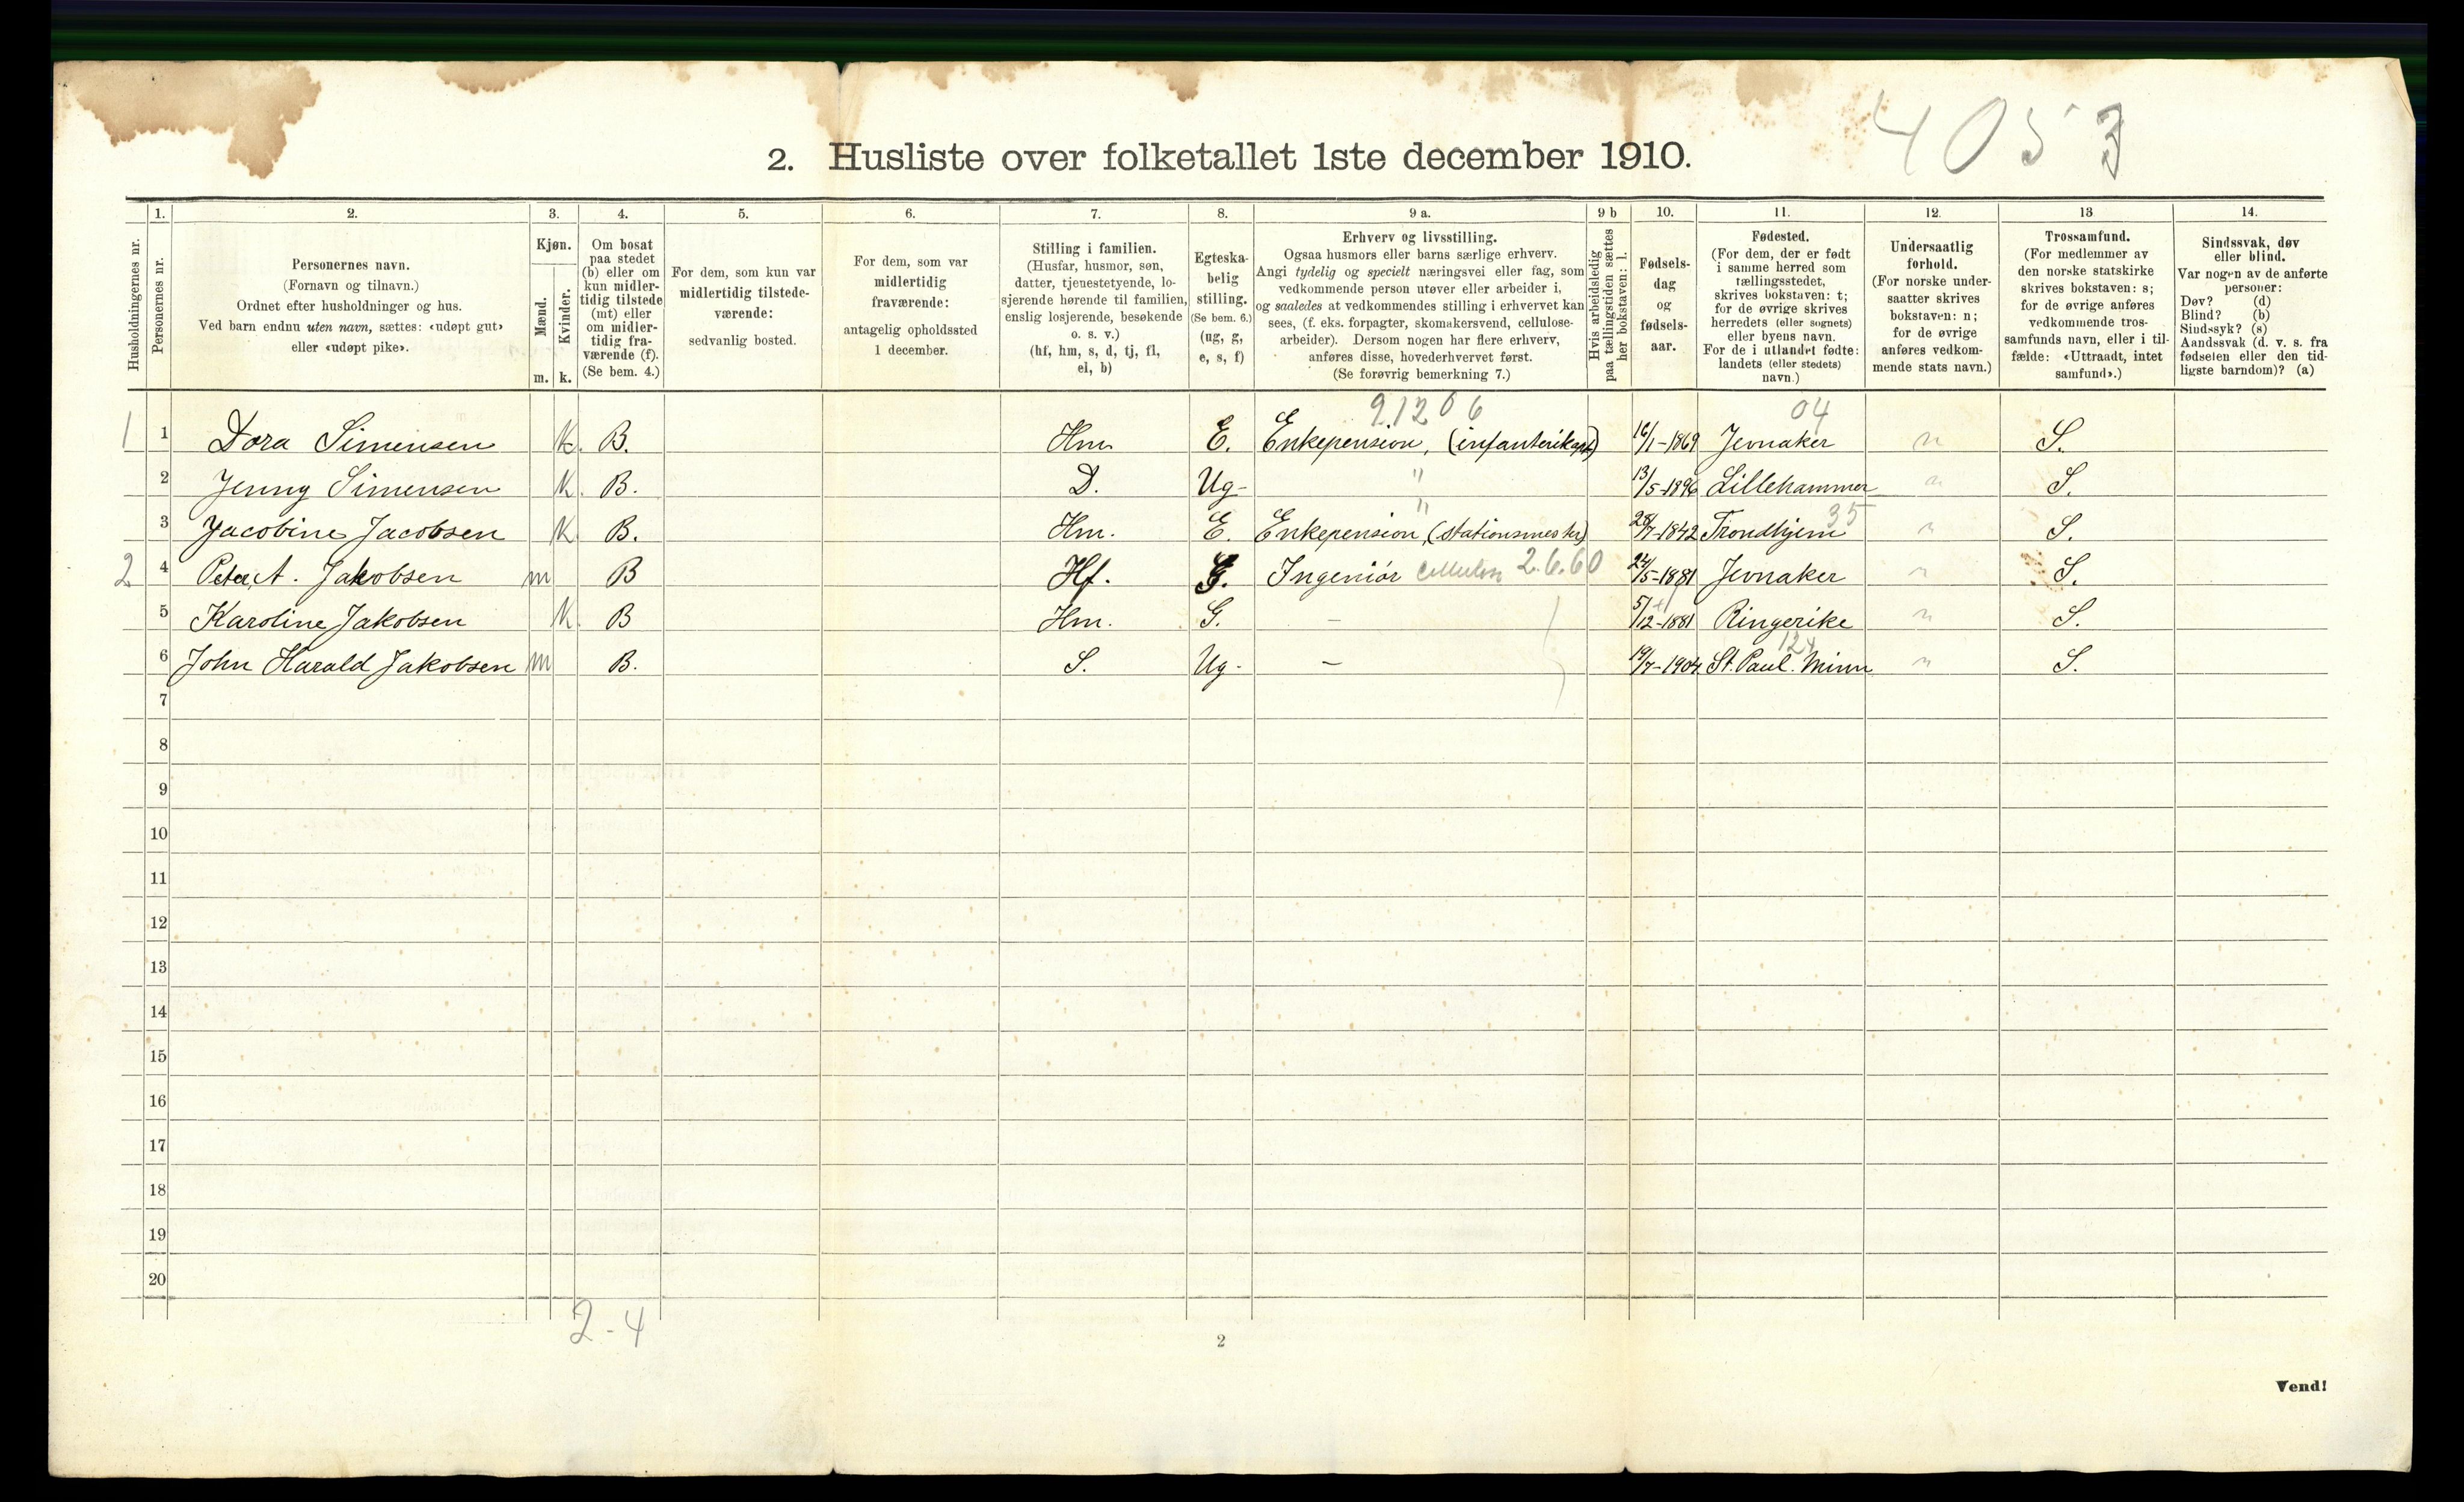 4053
2. Husliste over folketallet 1ste december 1910.
1. 2. 3. 4. 5. 6. 7. 8. 9 a. 9 b 10. 11. 12. 13 14.
Husholdningernes nr.
Personernes nr.
Personernes navn.
(Fornavn og tilnavn.)
Ordnet efter husholdninger og hus.
Ved barn endnu uten navn, sættes: «udøpt gut»
eller «udøpt pike».
Kjøn.
Mænd.
Kvinder.
m. k.
Om bosat
paa stedet
(b) eller om
kun midler-
tidig tilstede
(mt) eller
om midler-
tidig fra-
værende (f).
(Se bem. 4.)
For dem, som kun var
midlertidig tilstede-
værende:
sedvanlig bosted.
For dem, som var
midlertidig
fraværende:
antagelig opholdssted
1 december.
Stilling i familien.
(Husfar, husmor, søn,
datter, tjenestetyende, lo-
sjerende hørende til familien,
enslig losjerende, besøkende
o. s. v.)
(hf, hm, s, d, tj, fl,
el, b)
Egteska-
belig
stilling.
(Se bem. 6.)
(ug, g,
e, s, f)
Erhverv og livsstilling.
Ogsaa husmors eller barns særlige erhverv.
Angi tydelig og specielt næringsvei eller fag, som
vedkommende person utøver eller arbeider i,
og saaledes at vedkommendes stilling i erhvervet kan
sees, (f. eks. forpagter, skomakersvend, cellulose-
arbeider). Dersom nogen har flere erhverv,
anføres disse, hovederhvervet først.
(Se forøvrig bemerkning 7.)
Hvis arbeidsledig
paa tællingstiden sættes
her bokstaven: l.
Fødsels-
dag
og
fødsels-
aar.
Fødested.
(For dem, der er født
i samme herred som
tællingsstedet,
skrives bokstaven: t;
for de øvrige skrives
herredets (eller sognets)
eller byens navn.
For de i utlandet fødte:
landets (eller stedets)
navn.)
Undersaatlig
forhold.
(For norske under-
saatter skrives
bokstaven: n;
for de øvrige
anføres vedkom-
mende stats navn.)
Trossamfund.
(For medlemmer av
den norske statskirke
skrives bokstaven: s;
for de øvrige anføres
vedkommende tros-
samfunds navn, eller i til-
fælde: «Uttraadt, intet
samfund».)
Sindssvak, døv
eller blind.
Var nogen av de anførte
personer:
Døv? (d)
Blind? (b)
Sindssyk? (s)
Aandssvak (d. v. s. fra
fødselen eller den tid-
ligste barndom)? (a)
91206 04
1 1 Dora Simensen k. B. Hm E. Enkepension, (infanterikapt) 16/1-1869 Jevnaker n S.
2 Jenny Simensen k. B. D. Ug- " 13/5-1896 Lillehammer n S.
" 35
3 Jacobine Jacobsen k B. Hm. E. Enkepension, (stationsmester) 28/7-1842 Trondhjem n S.
2 4 Peter A. Jakobsen m B Hf. G. Ingeniør Cellulose 2.6.60 24/5-1881 Jevnaker n S.
5 Karoline Jakobsen k. B Hm. G. - 5/12-1881 Ringerike n S.
124
6 John Harald Jakobsen m B. S. Ug- - 19/7-1904. St. Paul. Minn n S.
7
8
9
10
11
12
13
14
15
16
17
18
19
20
2-4
2
Vend!